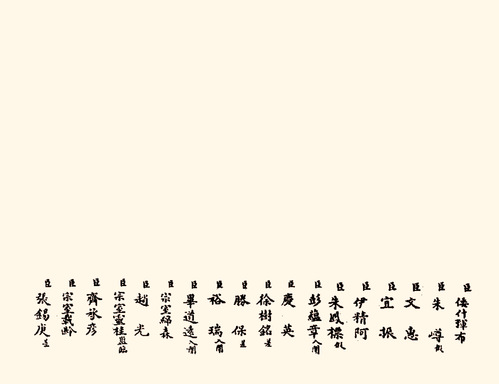 臣倭什琿布
臣朱嶟
臣文惠
臣宜振
臣伊精阿
臣朱鳳標
臣彭蘊章入闈
臣慶英
臣徐樹銘差
臣勝保差
臣裕瑞入闈
臣畢道遠入闈
臣宗室綿森
臣趙光
臣宗室靈桂
臣齊承彥
臣宗室載齡
臣張錫庚差